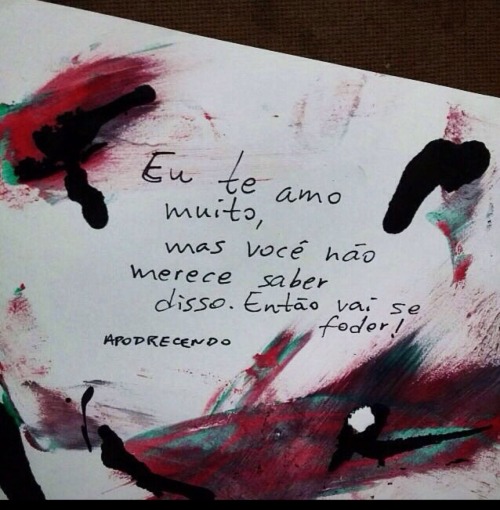 Eu te amo
muito,
mas você não
merece saber
disso. Então vai se
foder!
APODRECENDO